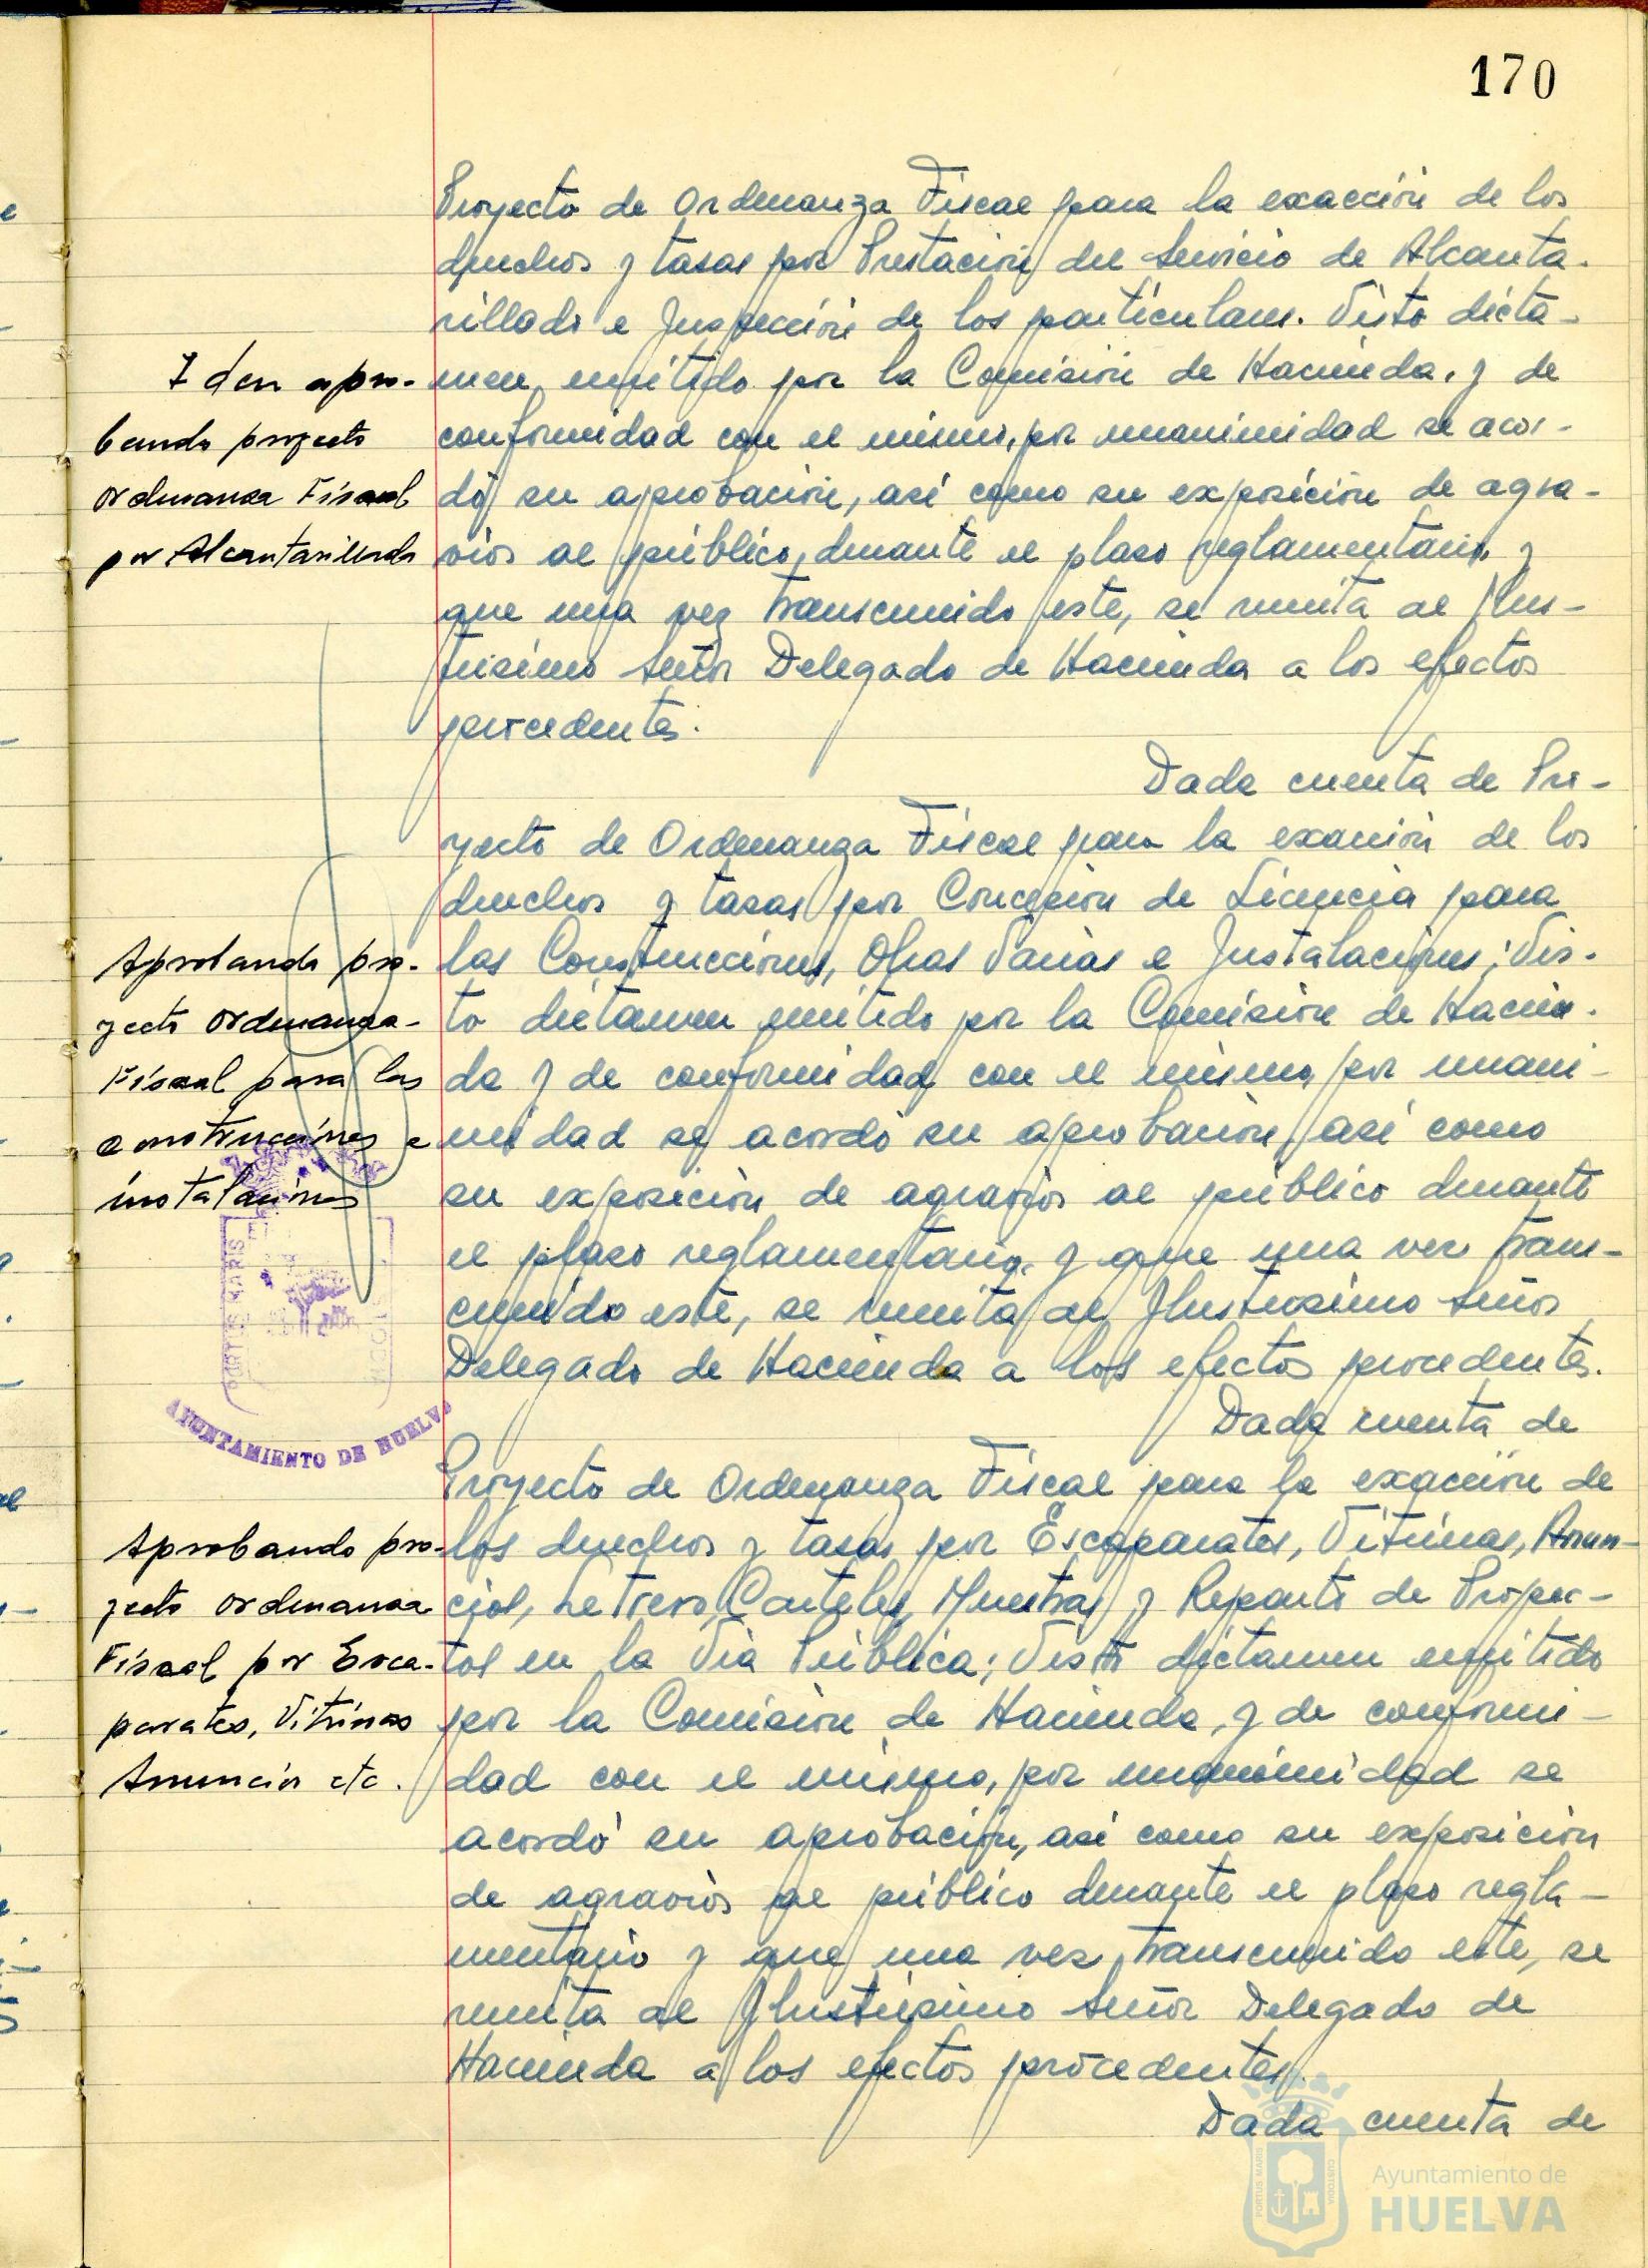 170
Proyecto de Ordenanza Fiscal para la exacción de los
derechos y tasas por Prestación del Servicio de Alcanta-
rillado e Inspección de los particulares. Visto dicta-
men emitido por la Comisión de Hacienda, y de
conformidad con el mismo, por unanimidad se acor-
dó su aprobación, así como su exposición de agra-
vios al público, durante el plazo reglamentario y
que una vez transcurrido este, se remita al Ilus-
trísimo Señor Delegado de Hacienda a los efectos
procedentes.
Idem apro-
bando proyecto
ordenanza Fiscal
por Alcantarillado
Dada cuenta de Pro-
yecto de Ordenanza Fiscal para la exacción de los
derechos y tasas por Concesión de Licencia para
las Construcciones, Obras Varias e Instalaciones; Vis-
to dictamen emitido por la Comisión de Hacien-
da y de conformidad con el mismo, por unani-
midad se acordó su aprobación, así como
su exposición de agravios al público durante
el plazo reglamentario, y que una vez trans-
currido este, se remita al Ilustrísimo Señor
Delegado de Hacienda a los efectos procedentes.
Aprobando pro-
yecto ordenanza
Fiscal para las
construcciones e
instalaciones
PORTUS MARIS
AYUNTAMIENTO DE HUELVA
Dada cuenta de
Proyecto de Ordenanza Fiscal para la exacción de
los derechos y tasas por Escaparates, Vitrinas, Anun-
cios, Letreros Carteles, Muestras y Reparto de Prospec-
tos en la Vía Pública; Visto dictamen emitido
por la Comisión de Hacienda, y de conformi-
dad con el mismo, por unanimidad se
acordó su aprobación, así como su exposición
de agravios al público durante el plazo regla-
mentario y que una vez transcurrido este, se
remita al Ilustrísimo Señor Delegado de
Hacienda a los efectos procedentes.
Aprobando pro-
yecto ordenanza
Fiscal por Esca-
parates, Vitrinas
Anuncios etc.
Dada cuenta de
PORTUS MARIS
CUSTODIA
Ayuntamiento de
HUELVA